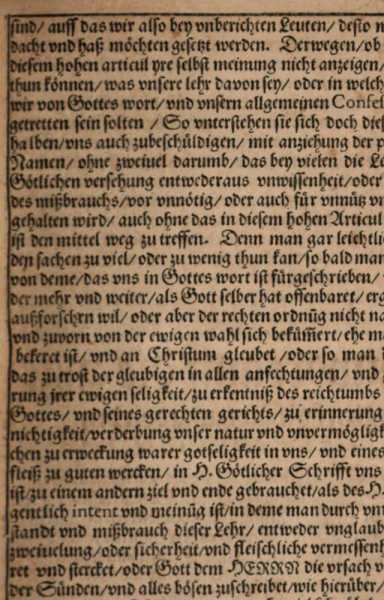 sind/ auff das wir also bey vnberichten Leuten/ desto
dacht vnd haß möchten gesetzt werden. Derwegen/ ob
diesem hohen articul yre selbst meinung nicht anzeigen/
thun können/ was vnsere lehr davon sey/ oder in welch
wir von Gottes wort/ vnd vnsern allgemeinen Confes
getretten sein solten/ So vnterstehen sie sich doch dies
halben/ vns auch zubeschüldigen/ mit anziehung der p
Namen/ ohne zweiuel darumb/ das bey vielen die Le
Götlichen versehung entwederaus vnwissenheit/ oder
des mißbrauchs/ vor vnnötig/ oder auch für vnnütz vn
gehalten wird/ auch ohne das in diesem hohen Articul
ist den mittel weg zu treffen. Denn man gar leichtlic
den sachen zu viel/ oder zu wenig thun kan/ so bald man
von deme/ das vns in Gottes wort ist fürgeschrieben/
der mehr vnd weiter/ als Gott selber hat offenbaret/ erg
außforschen wil/ oder aber der rechten ordnūg nicht na
vnd zuvorn von der ewigen wahl sich bekūmert/ ehe m
bekeret ist/ vnd an Christum gleubet/ oder so man
das zu trost der gleubigen in allen anfechtungen/ vnd
rung jrer ewigen seligkeit/ zu erkentniß des reichtumbs
Gottes/ vnd seines gerechten gerichts/ zu erinnerung
nichtigkeit/ verderbung vnser natur vnd vnvermögligk
chen zu erweckung warer gotseligkeit in vns/ vnd eines
fleiß zu guten wercken/ in H. Götlicher Schrifft vns
ist/ zu einem andern ziel vnd ende gebrauchet/ als des H.
gentlich intent vnd meinūg ist/ in deme man durch vn
standt vnd mißbrauch dieser Lehr/ entweder vnglaub
zweiuelung/ oder sicherheit/ vnd fleischliche vermessenh
ret vnd stercket/ oder Gott dem HERRN die vrsach v
der Sünden/ vnd alles bösen zuschreibet/ wie hierüber/